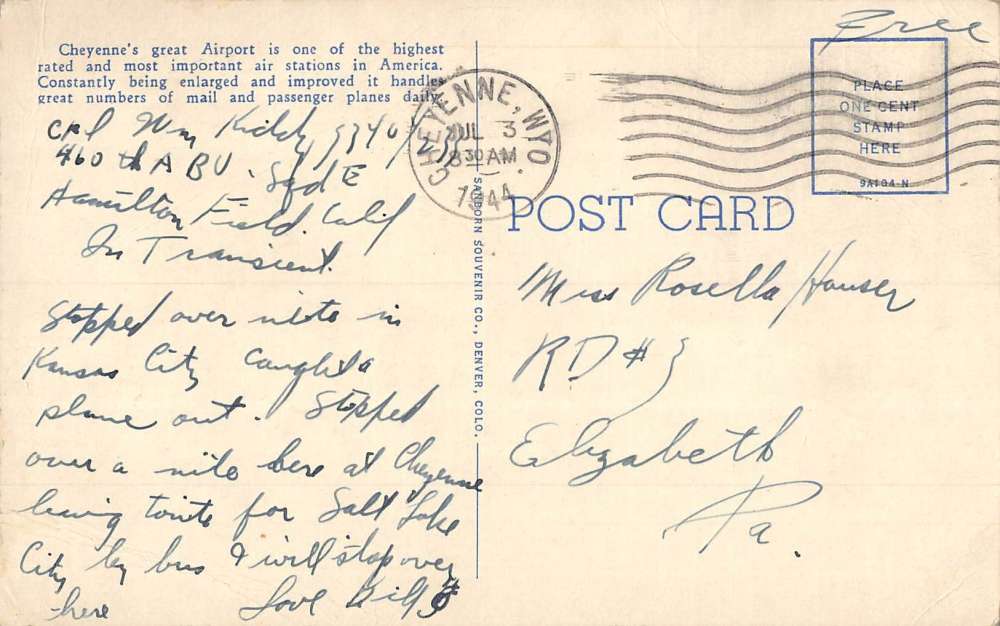 Cheyenne's great Airport is one of the highest
rated and most important air stations in America.
Constantly being enlarged and improved it handles
great numbers of mail and passenger planes daily.
Cpl Wm Kiddy
460th A BU. Sqd E
Hamilton Field. Calif
In Transient.
Stopped over nite in
Kansas City Caught a
plane out. Stopped
over a nite here at Cheyenne
leaving tonite for Salt Lake
City by bus I will stop over
there Love Bill
SANBORN SOUVENIR CO., DENVER, COLO.
CHEYENNE, WYO.
JUL 3
8 30 AM
1944
Free
PLACE
ONE CENT
STAMP
HERE
9A194-N
POST CARD
Miss Rosella Hauser
RD #3
Elizabeth
Pa.